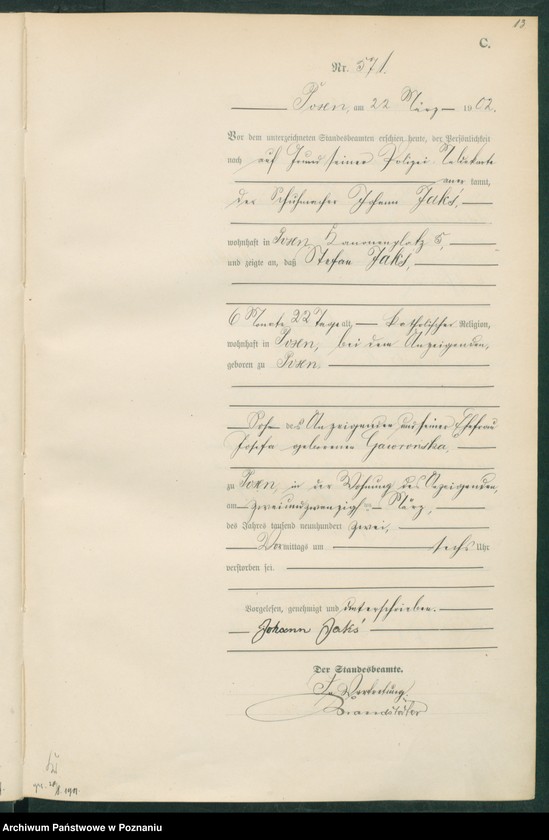 13
C.
Nr. 571.
Posen, am 22 März 1902.
Vor dem unterzeichneten Standesbeamten erschien heute, der Persönlichkeit
nach auf Grund seiner Polizei
kannt,
der Schuhmacher Johann Jakś,
wohnhaft in Posen, Kanonenplatz 5,
und zeigte an, daß Stefan Jakś,
6 Monate 22 Tage alt, katholischer Religion,
wohnhaft in Posen, bei dem Anzeigenden,
geboren zu Posen.
Sohn des Anzeigenden und seiner Ehefrau
Josefa geborenen Gawrońska,
zu Posen, in der Wohnung des Anzeigenden,
am zweiundzwanzigsten März,
des Jahres tausend neunhundert zwei,
Vormittags um sechs Uhr
verstorben sei.
Vorgelesen, genehmigt und unterschrieben.
Johann Jakś
Der Standesbeamte.
In Vertretung.
Brandstäter
Archiwum Państwowe w Poznaniu